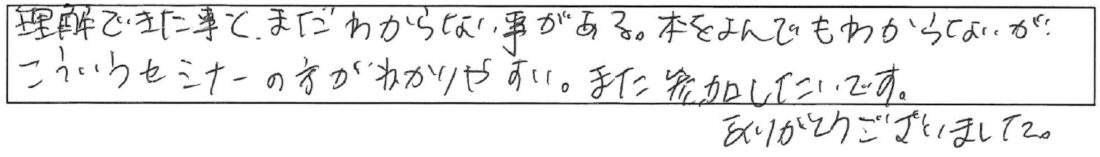 理解できた事と、まだわからない事がある。本をよんでもわからないが
こういうセミナーの方がわかりやすい。また参加したいです。
ありがとうございました。